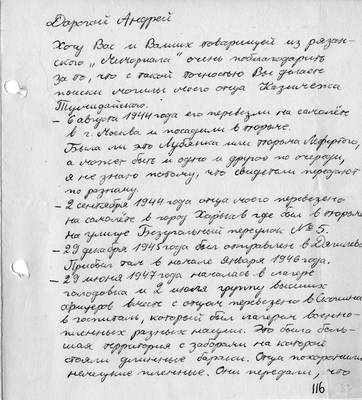 Дорогой Андрей
Хочу Вас и Ваших товарищей из рязан-
ского „Мемориала" очень поблагодарить
за то, что с такой точностью Вы делаете
поиски могилы моего отца Казимежа
Тумидайского.
– 6 августа 1944 года его перевезли на самолёте
в г. Москва и посадили в тюрьме.
Была ли это Лубянка или тюрьма Лефортово,
а может быть и одно и другое по очереди,
я не знаю потому, что свидетели передают
по разному.
– 2 сентября 1944 года отца моего перевезено
на самолёте в город Харьков где был в тюрьме
на улице переулок № 5.
– 29 декабря 1945 года был отправлен в Дягилево
Приехал там в начале января 1946 года.
– 29 июня 1947 года началась в лагере
голодовка и 2 июля группу высших
офицеров вместе с отцом перевезено в Скопина
в госпиталь, который был лагерем военно-
пленных разных наций. Это была боль-
шая территория с заборами на которой
стояли длинные бараки. Отца похоронили
немецкие пленные. Они передали, что
116